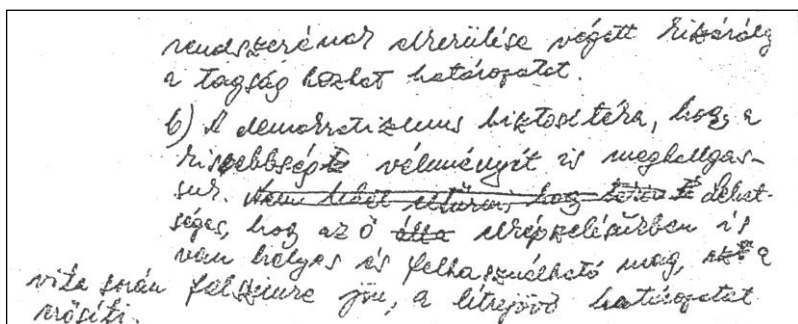 rendszerének elkerülése végett kizárólag
a tagság hozhat határozatot.
b) A demokratizmus biztosítéka, hogy a
kisebbség vélményét is meghallgas-
suk. Nem lehet eltűrni, hogy lehet-
séges, hogy az ő elképzelésükben is
van helyes és felhasználható mag, ez a
vita során felszínre jön, a létrejövő határozatot
erősíti.